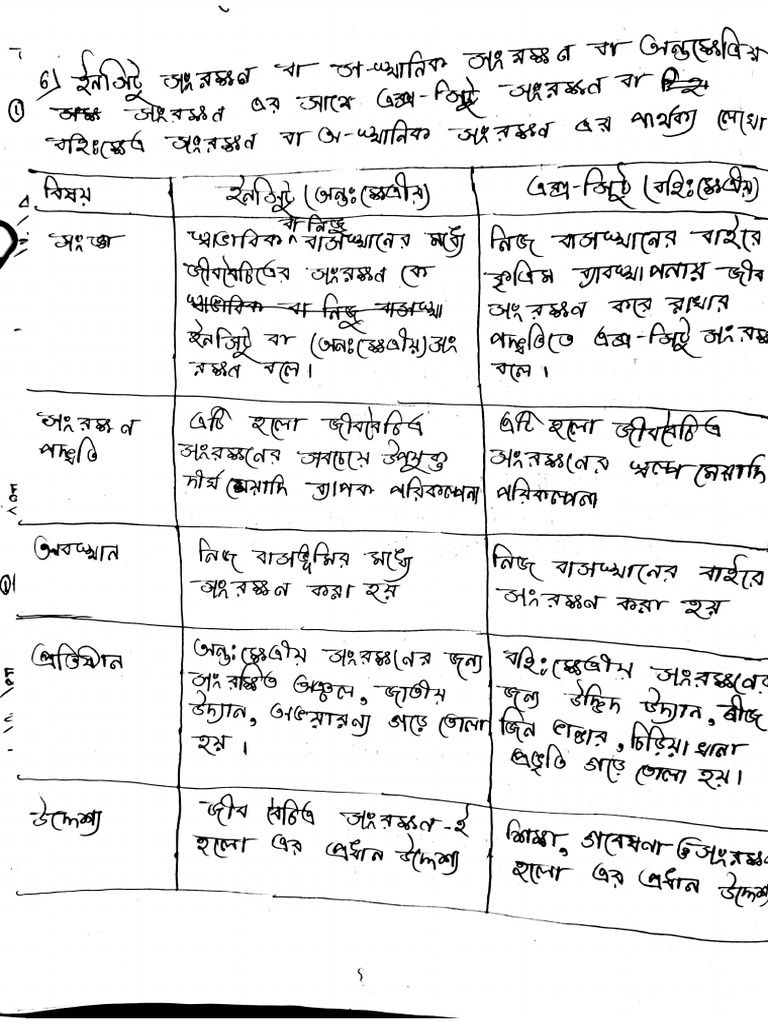 6) ইনসিটু সংরক্ষণ বা স্ব-স্থানিক সংরক্ষণ বা অন্তঃক্ষেত্রীয়
① সংরক্ষণ এর সাথে এক্স-সিটু সংরক্ষণ বা
বহিঃক্ষেত্র সংরক্ষণ বা অ-স্থানিক সংরক্ষণ এর পার্থক্য লেখো
বিষয়
ইনসিটু (অন্তঃক্ষেত্রীয়)
এক্স-সিটু (বহিঃক্ষেত্রীয়)
সংজ্ঞা
বা নিজ
স্বাভাবিক বাসস্থানের মধ্যে
জীববৈচিত্রের সংরক্ষণ কে
স্বাভাবিক বা নিজ বাসস্থা
ইনসিটু বা (অন্তঃক্ষেত্রীয়) সং
রক্ষণ বলে।
নিজ বাসস্থানের বাইরে
কৃত্রিম ব্যবস্থাপনায় জীব
সংরক্ষণ করে রাখার
পদ্ধতিতে এক্স-সিটু সংরক্ষ
বলে।
সংরক্ষণ
পদ্ধতি
এটি হলো জীববৈচিত্র
সংরক্ষণের সবচেয়ে উপযুক্ত
দীর্ঘ মেয়াদি ব্যাপক পরিকল্পনা
এটি হলো জীববৈচিত্র
সংরক্ষণের স্বল্প মেয়াদি
পরিকল্পনা
অবস্থান
নিজ বাসভূমির মধ্যে
সংরক্ষণ করা হয়
নিজ বাসস্থানের বাইরে
সংরক্ষণ করা হয়
প্রতিষ্ঠান
অন্তঃক্ষেত্রীয় সংরক্ষণের জন্য
সংরক্ষিত অঞ্চল, জাতীয়
উদ্যান, অভয়ারন্য গড়ে তোলা
হয়।
বহিঃক্ষেত্রীয় সংরক্ষণের
জন্য উদ্ভিদ উদ্যান, বীজ
জিন ভাণ্ডার, চিড়িয়াখানা
প্রভৃতি গড়ে তোলা হয়।
উদ্দেশ্য
জীব বৈচিত্র সংরক্ষন-ই
হলো এর প্রধান উদ্দেশ্য
শিক্ষা, গবেষনা ও সংরক্ষ
হলো এর প্রধান উদ্দেশ্য